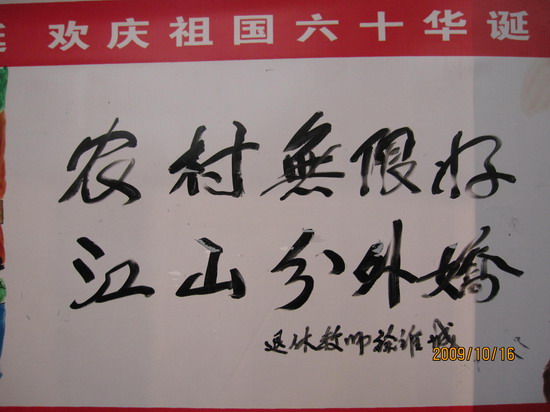 欢庆祖国六十华诞
农村無限好
江山分外娇
退休教师徐维城
2009/10/16